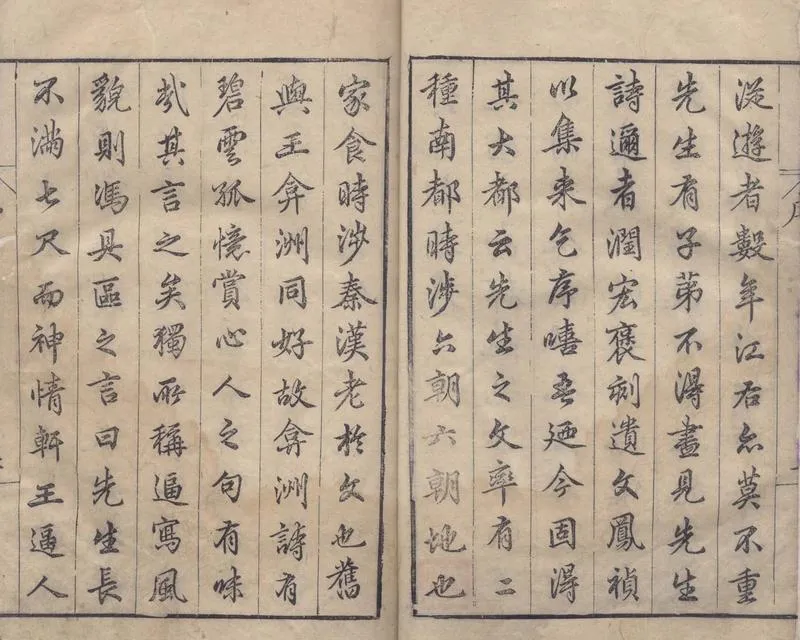 從遊者數年江右亦莫不重
先生有子弟不得盡見先生
詩邇者潤宏裒刻遺文鳳禎
以集来乞序嘻吾廼今固得
其大都云先生之文率有二
種南都時涉六朝六朝地也
家食時涉秦漢老於文也舊
與王弇洲同好故弇洲詩有
碧雲孤憶賞心人之句有味
哉其言之矣獨所稱逼寫風
貌則馮具區之言曰先生長
不滿七尺而神情軒王逼人